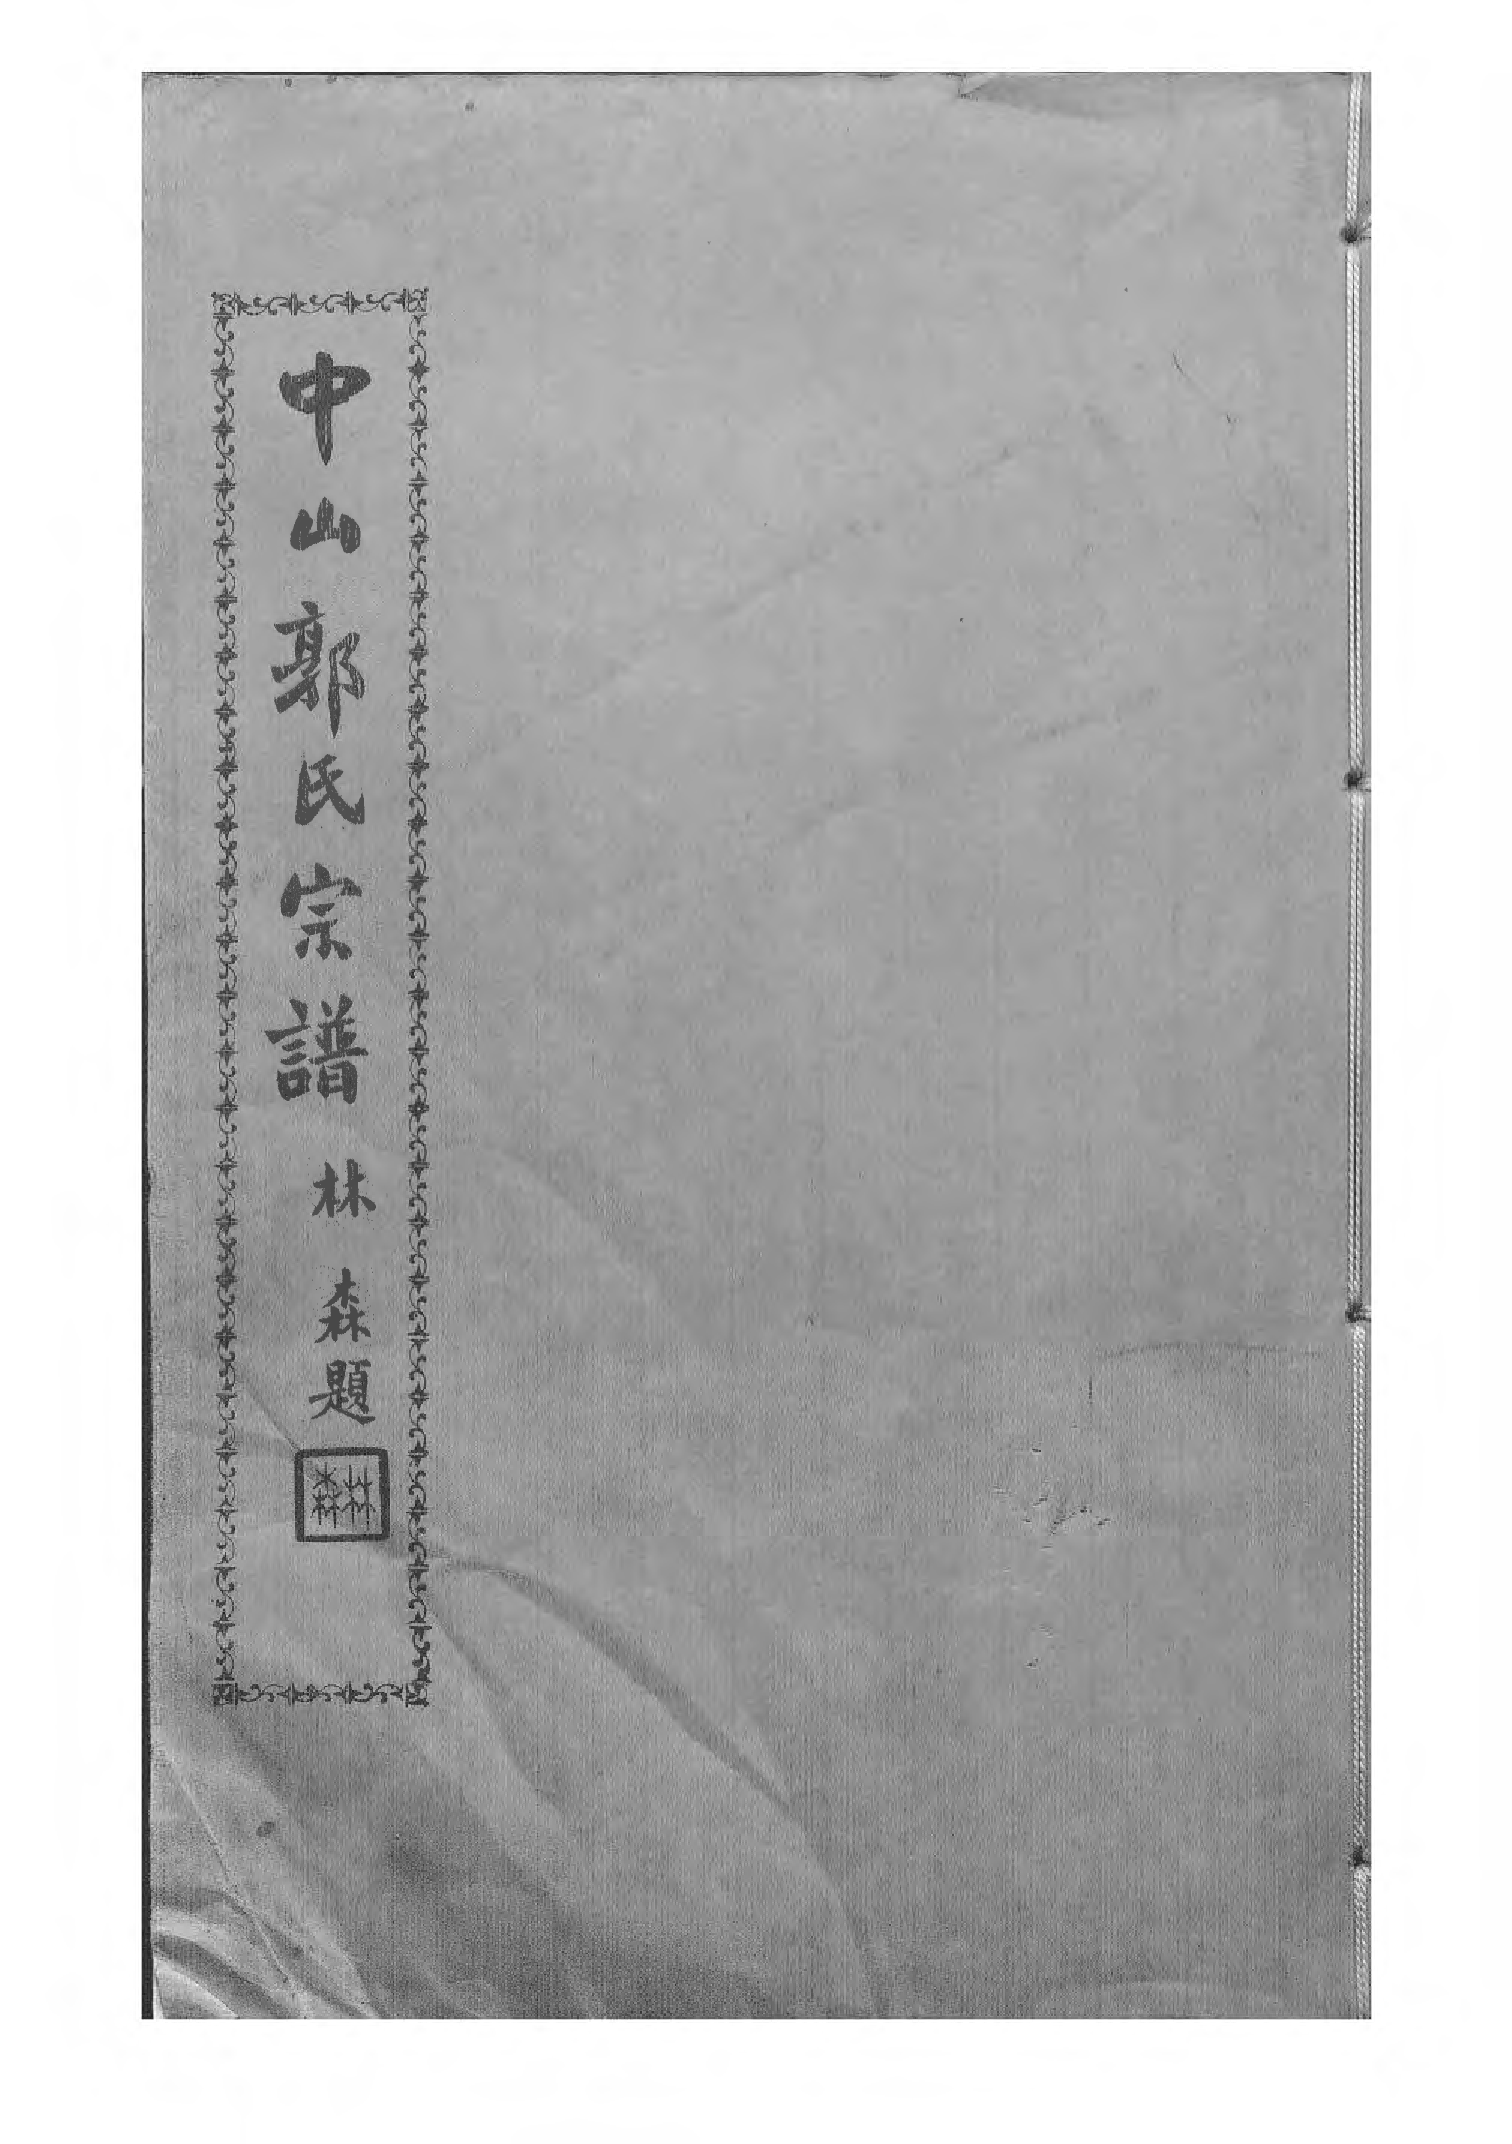 中山郭氏宗譜
林森題
林森